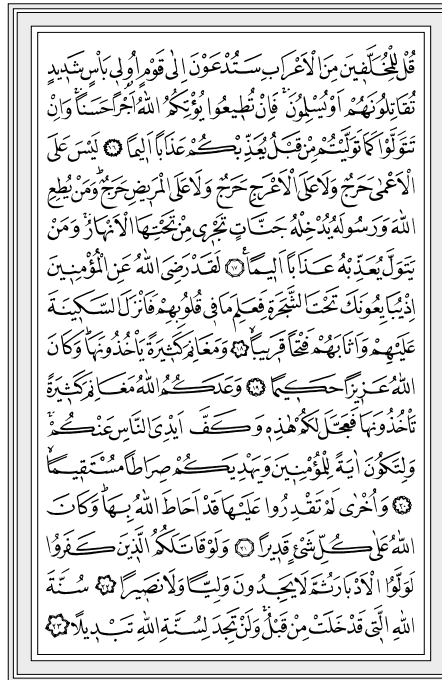 قُلْ لِلْمُخَلَّفٖينَ مِنَ الْاَعْرَابِ سَتُدْعَوْنَ اِلٰى قَوْمٍ اُو۬لٖي بَاْسٍ شَدٖيدٍ
تُقَاتِلُونَهُمْ اَوْ يُسْلِمُونَۚ فَاِنْ تُطٖيعُوا يُؤْتِكُمُ اللّٰهُ اَجْرًا حَسَنًاۚ وَاِنْ
تَتَوَلَّوْا كَمَا تَوَلَّيْتُمْ مِنْ قَبْلُ يُعَذِّبْكُمْ عَذَابًا اَلٖيمًا ﴿١٦﴾ لَيْسَ عَلَى
الْاَعْمٰى حَرَجٌ وَلَا عَلَى الْاَعْرَجِ حَرَجٌ وَلَا عَلَى الْمَرٖيضِ حَرَجٌۜ وَمَنْ يُطِعِ
اللّٰهَ وَرَسُولَهُ يُدْخِلْهُ جَنَّاتٍ تَجْرٖي مِنْ تَحْتِهَا الْاَنْهَارُۚ وَمَنْ
يَتَوَلَّ يُعَذِّبْهُ عَذَابًا اَلٖيمًا۟ ﴿١٧﴾ لَقَدْ رَضِيَ اللّٰهُ عَنِ الْمُؤْمِنٖينَ
اِذْ يُبَايِعُونَكَ تَحْتَ الشَّجَرَةِ فَعَلِمَ مَا فٖي قُلُوبِهِمْ فَاَنْزَلَ السَّكٖينَةَ
عَلَيْهِمْ وَاَثَابَهُمْ فَتْحًا قَرٖيبًاۙ ﴿١٨﴾ وَمَغَانِمَ كَثٖيرَةً يَاْخُذُونَهَاۜ وَكَانَ
اللّٰهُ عَزٖيزًا حَكٖيمًا ﴿١٩﴾ وَعَدَكُمُ اللّٰهُ مَغَانِمَ كَثٖيرَةً
تَاْخُذُونَهَا فَعَجَّلَ لَكُمْ هٰذِهٖ وَكَفَّ اَيْدِيَ النَّاسِ عَنْكُمْۚ
وَلِتَكُونَ اٰيَةً لِلْمُؤْمِنٖينَ وَيَهْدِيَكُمْ صِرَاطًا مُسْتَقٖيمًاۙ
﴿٢٠﴾ وَاُخْرٰى لَمْ تَقْدِرُوا عَلَيْهَا قَدْ اَحَاطَ اللّٰهُ بِهَاۜ وَكَانَ
اللّٰهُ عَلٰى كُلِّ شَيْءٍ قَدٖيرًا ﴿٢١﴾ وَلَوْ قَاتَلَكُمُ الَّذٖينَ كَفَرُوا
لَوَلَّوُا الْاَدْبَارَ ثُمَّ لَا يَجِدُونَ وَلِيًّا وَلَا نَصٖيرًا ﴿٢٢﴾ سُنَّةَ
اللّٰهِ الَّتٖي قَدْ خَلَتْ مِنْ قَبْلُۚ وَلَنْ تَجِدَ لِسُنَّةِ اللّٰهِ تَبْدٖيلًا ﴿٢٣﴾